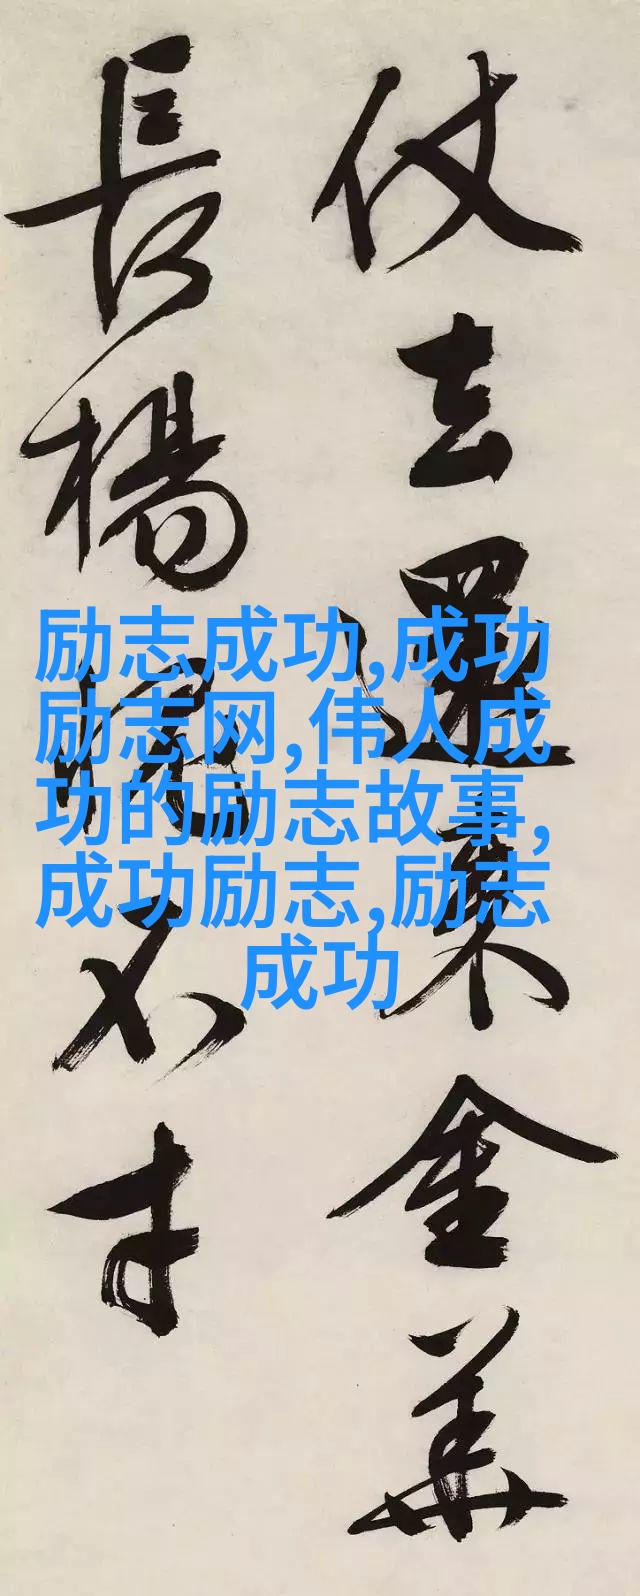 仗去還來金華
長楊愧不才
励志成功,成功
励志网,伟人成
功的励志故事,
成功励志,励志
成功